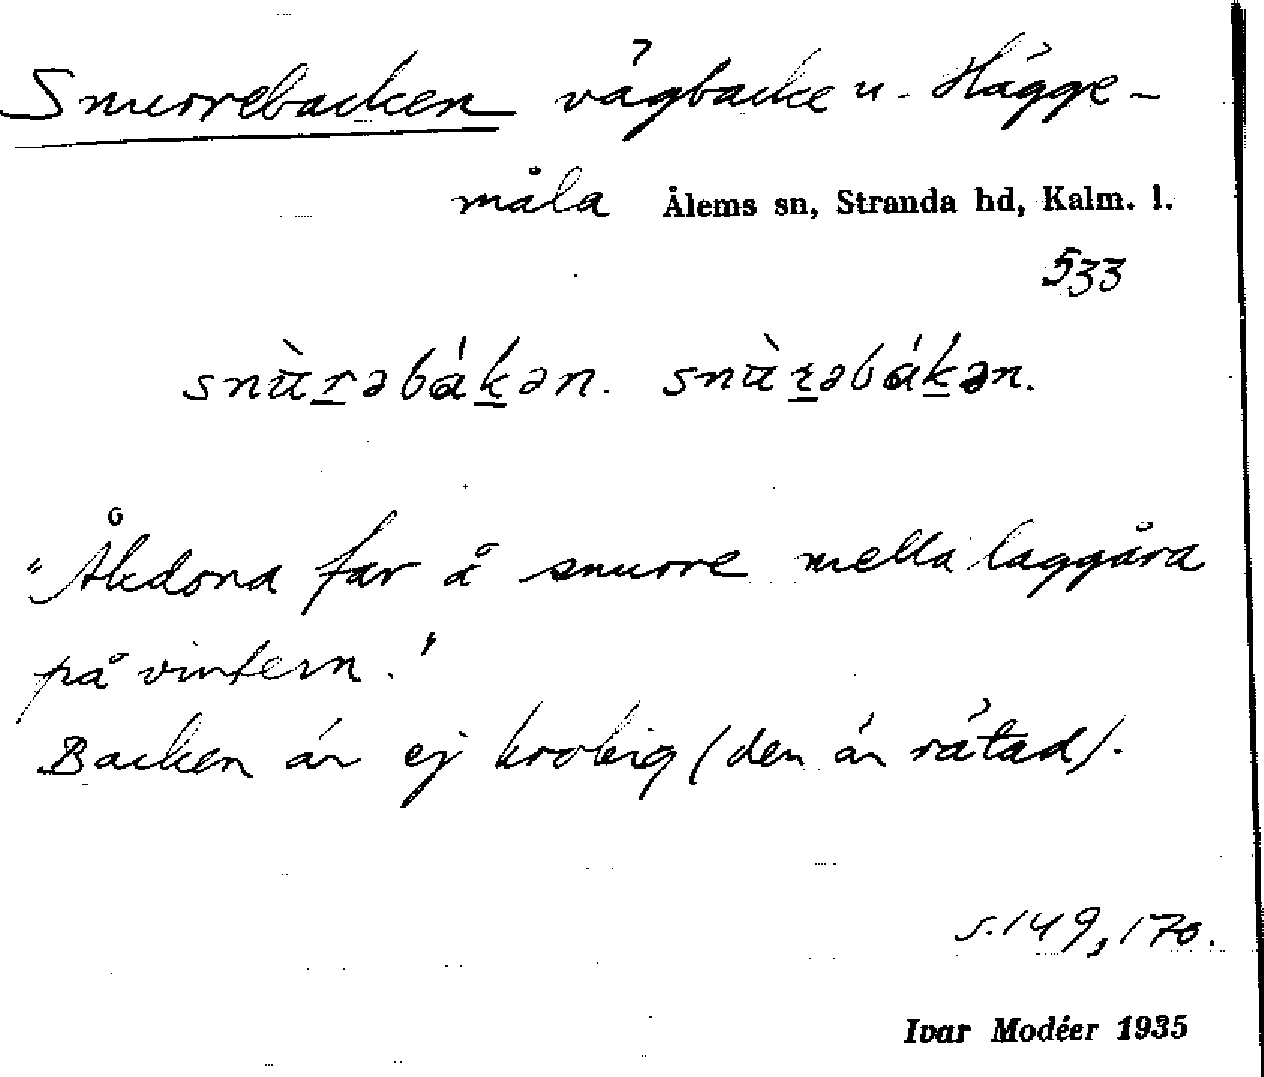 Snurrebacken vägbacke u. Hägge-
måla Ålems sn, Stranda hd, Kalm. l.
533
snùrəbákən. snùrəbákən.
"Åkdona far å snurre mella laggåra
på vintern."
Backen är ej krokig (den är rätad).
s. 149, 170.
Ivar Modéer 1935